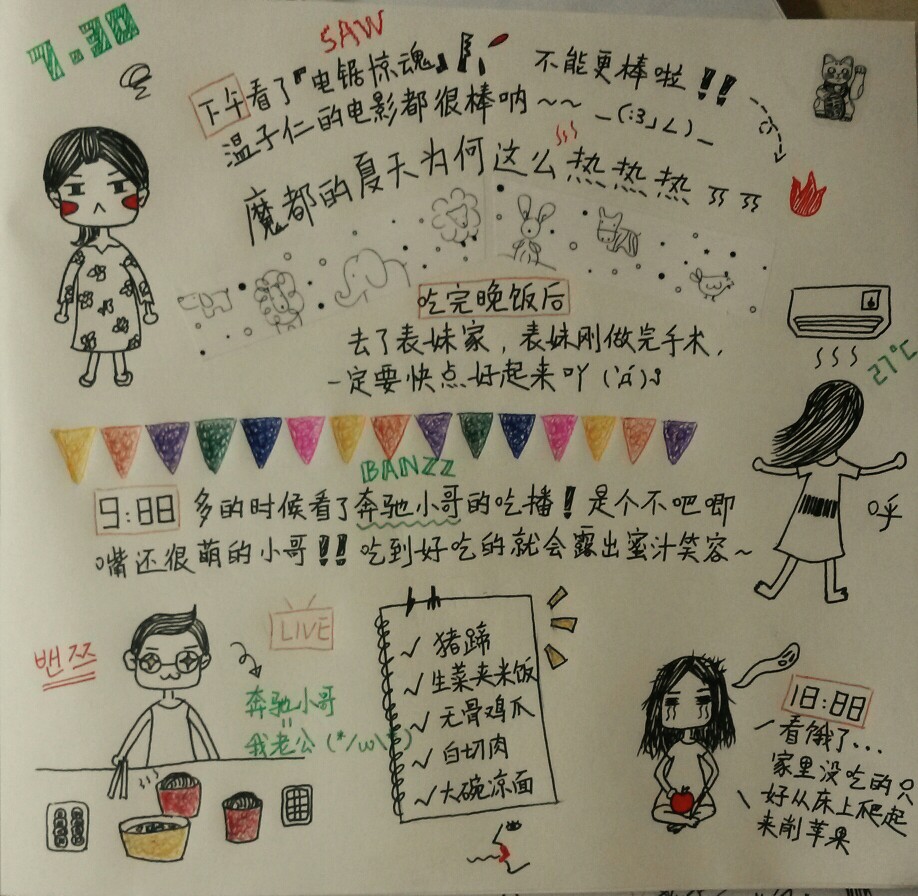 7.30
SAW
下午看了『电锯惊魂』 不能更棒啦!!
温子仁的电影都很棒呐~~ _(:3」∠)_
魔都的夏天为何这么热热热
吃完晚饭后
去了表妹家，表妹刚做完手术，
一定要快点好起来吖
27℃
呼
BANZZ
9:88 多的时候看了奔驰小哥的吃播！是个不吧唧
嘴还很萌的小哥!! 吃到好吃的就会露出蜜汁笑容~
밴쯔
LIVE
奔驰小哥
=
我老公(*/ω\*)
✓ 猪蹄
✓ 生菜夹米饭
✓ 无骨鸡爪
✓ 白切肉
✓ 大碗凉面
18:88
看饿了...
家里没吃的只
好从床上爬起
来削苹果